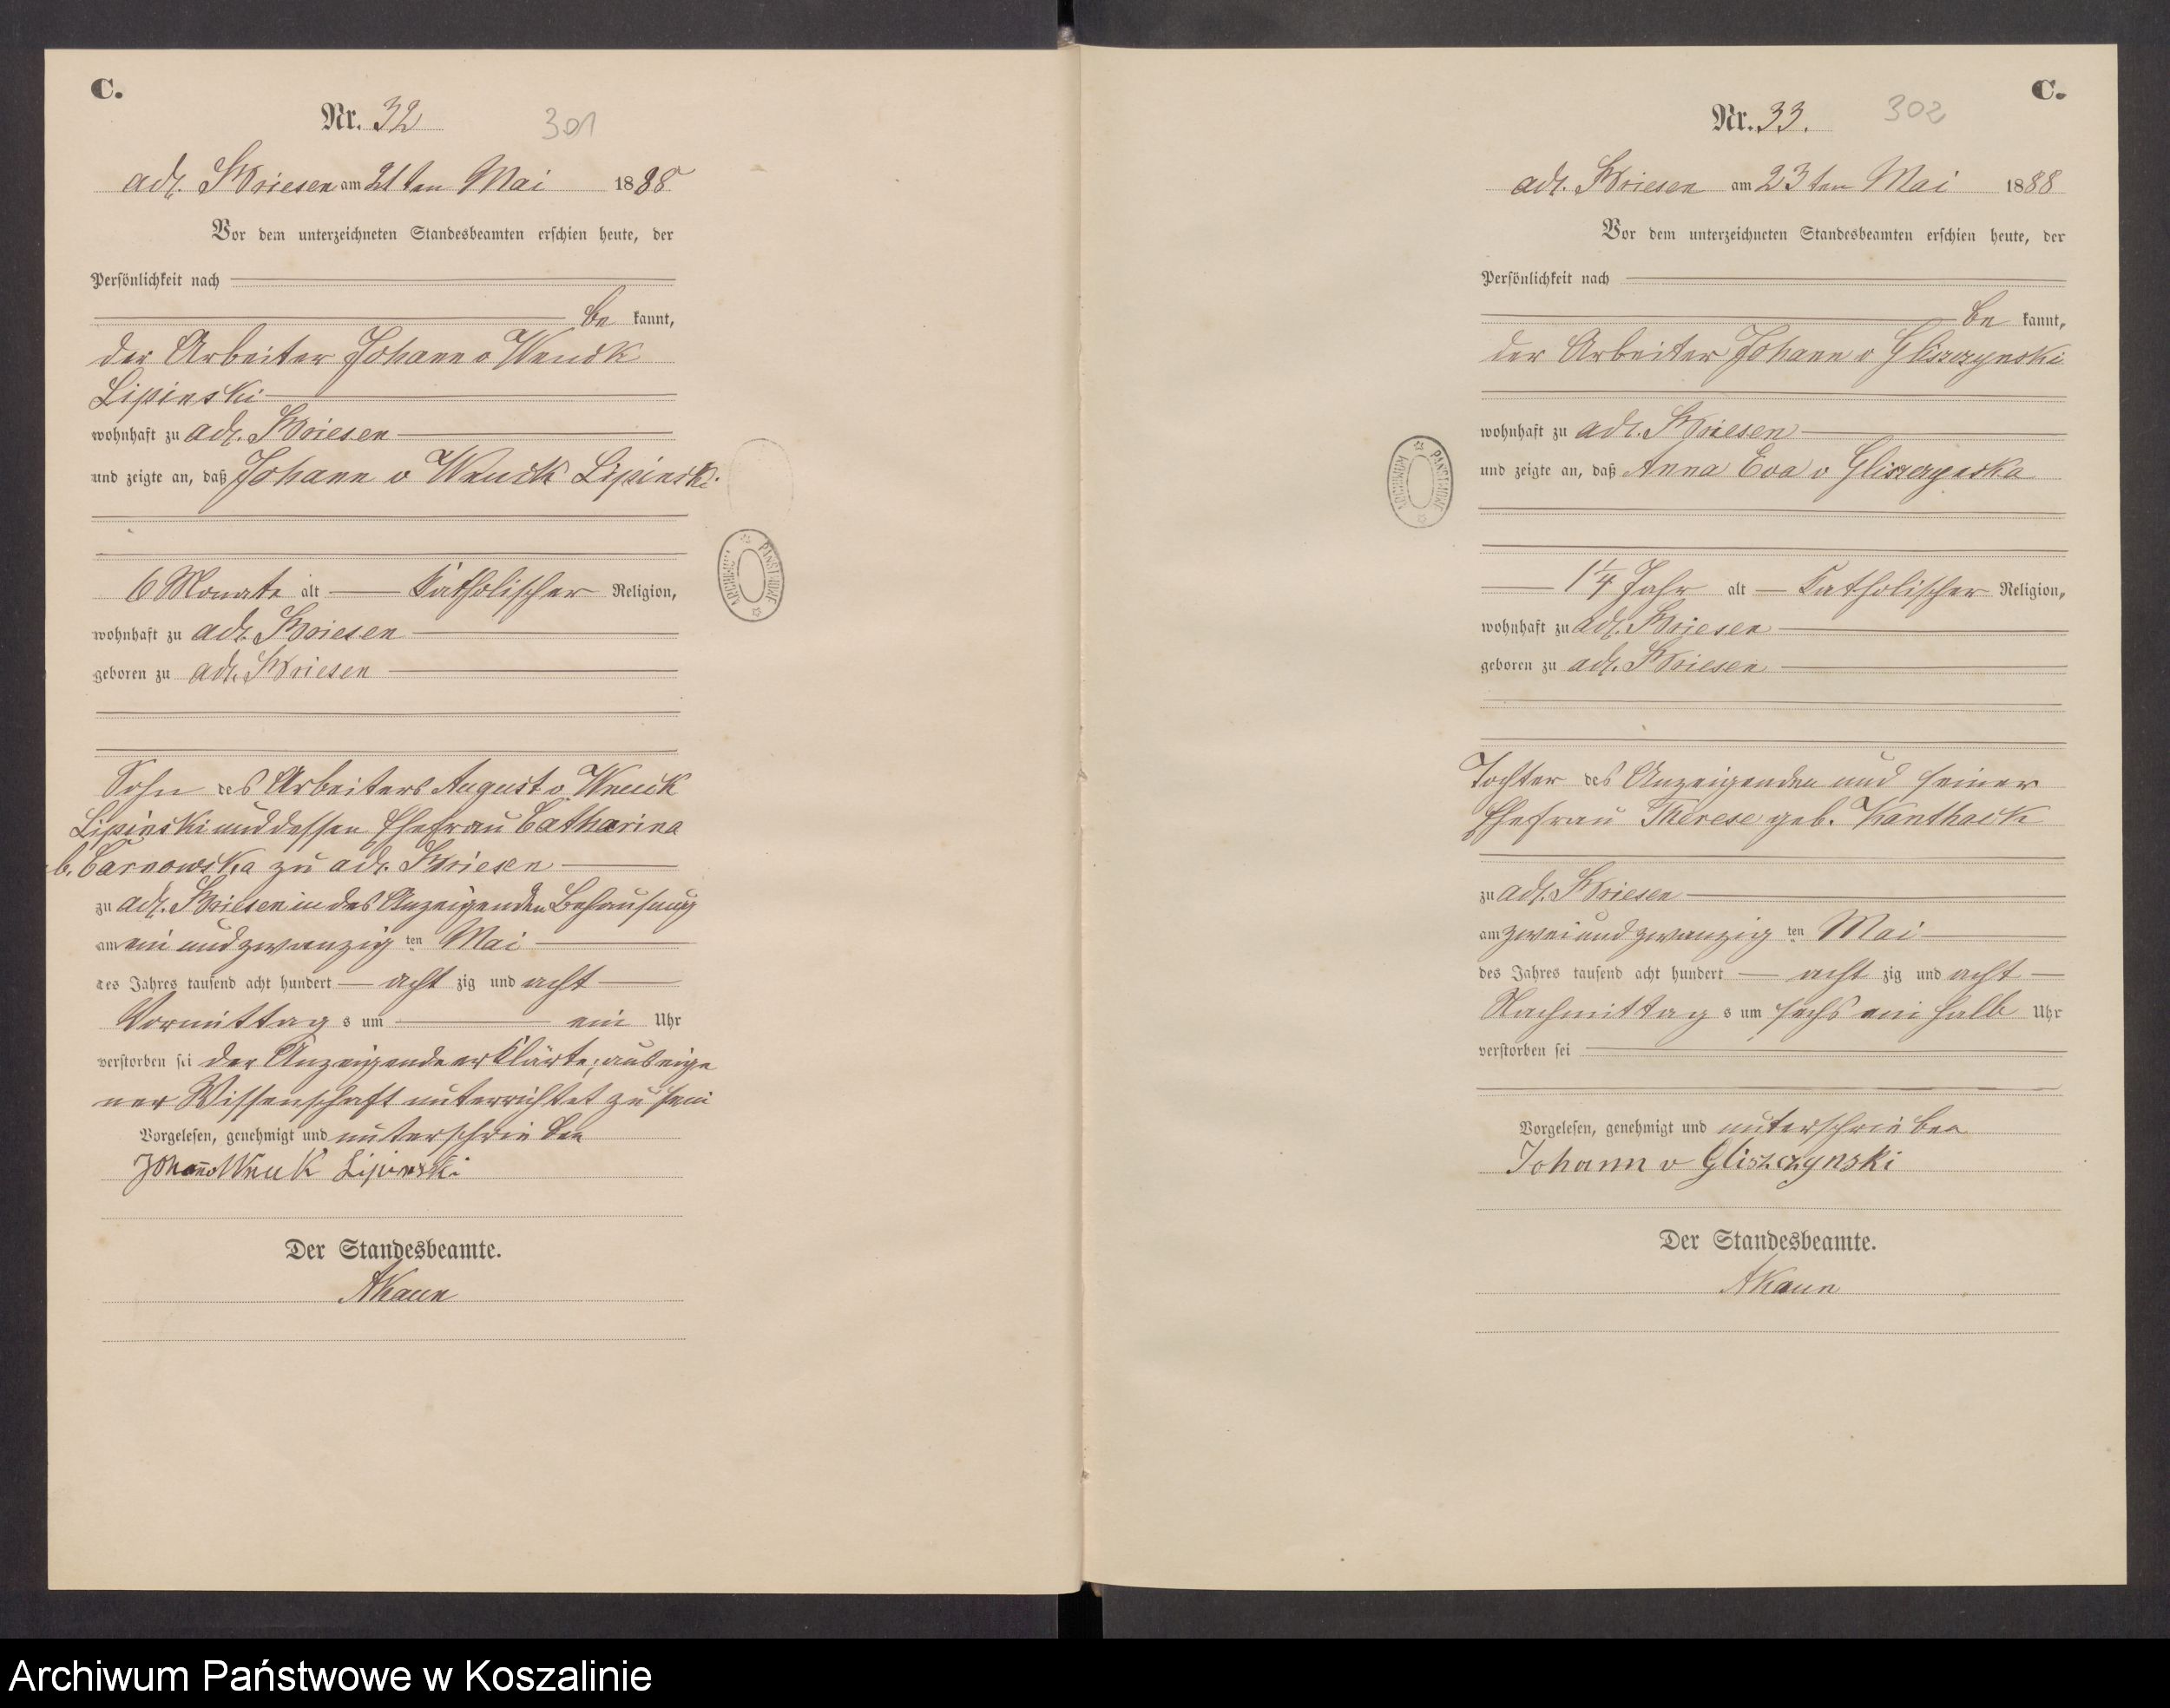 C.
Nr. 32
301
adl. Briesen am 21ten Mai 1888
Vor dem unterzeichneten Standesbeamten erschien heute, der
Persönlichkeit nach
be kannt,
der Arbeiter Johann v Wendk
Lipinski
wohnhaft zu adl. Briesen
und zeigte an, daß Johann v Wnuck Lipinski
6 Monate alt Katholischer Religion,
wohnhaft zu adl. Briesen
geboren zu adl. Briesen
Sohn des Arbeiters August v Wnuck
Lipinski und dessen Ehefrau Catharina
b. Carnowska zu adl. Briesen
zu adl. Briesen in des Anzeigenden Behausung
am ein und zwanzig ten Mai
des Jahres tausend acht hundert acht zig und acht
Vormittag s um ein Uhr
verstorben sei der Anzeigende erklärte, aus eige
ner Wissenschaft unterrichtet zu sein
Vorgelesen, genehmigt und unterschrieben
Johann v Wnuk Lipinski
Der Standesbeamte.
C.
Nr. 33.
302
adl. Briesen am 23ten Mai 1888
Vor dem unterzeichneten Standesbeamten erschien heute, der
Persönlichkeit nach
be kannt,
der Arbeiter Johann v Gliszczynski
wohnhaft zu adl. Briesen
und zeigte an, daß Anna Eva v Gliszczynska
1 1/4 Jahr alt Katholischer Religion,
wohnhaft zu adl. Briesen
geboren zu adl. Briesen
Tochter des Anzeigenden und seiner
Ehefrau Therese geb. Kanthack
zu adl. Briesen
am zwei und zwanzig ten Mai
des Jahres tausend acht hundert acht zig und acht
Nachmittag s um sechs ein halb Uhr
verstorben sei
Vorgelesen, genehmigt und unterschrieben
Johann v Gliszczynski
Der Standesbeamte.
ARCHIWUM PAŃSTWOWE
ARCHIWUM PAŃSTWOWE
Archiwum Państwowe w Koszalinie